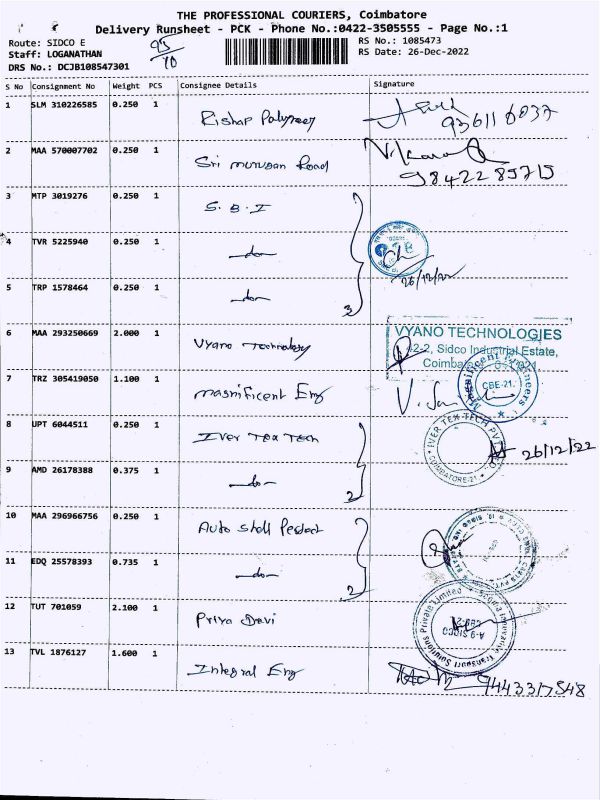 THE PROFESSIONAL COURIERS, Coimbatore
Delivery Runsheet - PCK - Phone No.:0422-3505555 - Page No.:1
Route: SIDCO E
Staff: LOGANATHAN
DRS No.: DCJB108547301
95/10
RS No.: 1085473
RS Date: 26-Dec-2022
S No Consignment No Weight PCS Consignee Details Signature
1 SLM 310226585 0.250 1
2 MAA 570007702 0.250 1 Sri murugan Road
9842285715
3 MTP 3019276 0.250 1 S.B.I
4 TVR 5225940 0.250 1 -do-
26/12/22
5 TRP 1578464 0.250 1 -do-
3
6 MAA 293250669 2.000 1 Vyano Technology
VYANO TECHNOLOGIES
Sidco Industrial Estate,
7 TRZ 305419050 1.100 1 Magnificent Eng
Magnificent Engineers
CBE-21.
8 UPT 6044511 0.250 1 Iver Tex Tech
IVER TEX TECH PVT LTD
COIMBATORE-21
26/12/22
9 AMD 26178388 0.375 1 -do-
2
10 MAA 296966756 0.250 1
11 EDQ 25578393 0.735 1 -do-
2
12 TUT 701059 2.100 1 Priya Devi
Transport Solutions Private Limited
A-9 SIDCO
13 TVL 1876127 1.600 1 Integral Eng
9443317548